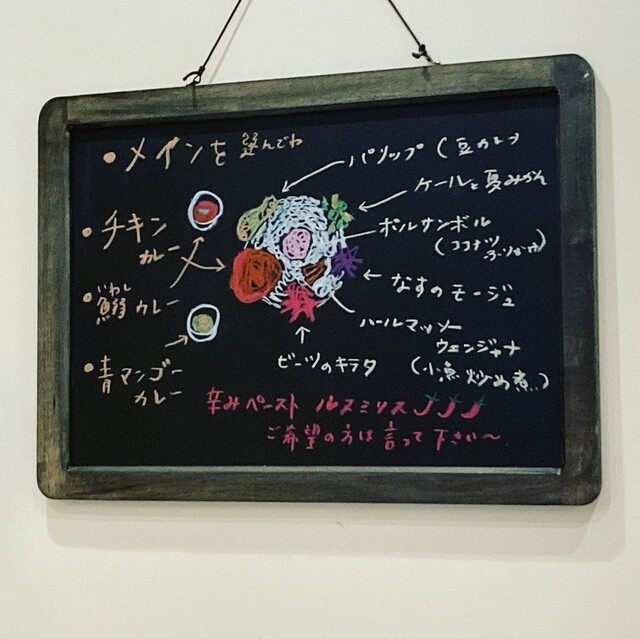 ・メインを選んでね
・チキン
カレー
いわし
・鰯カレー
・青マンゴー
カレー
パリップ(豆カレー)
ケールと夏みかん
ポルサンボル
(ココナツ
なすのモージュ
ハールマッソー
ウェンジャナ
(小魚炒め煮)
ビーツのキラタ
辛みペースト ルヌミリス
ご希望の方は言って下さい〜